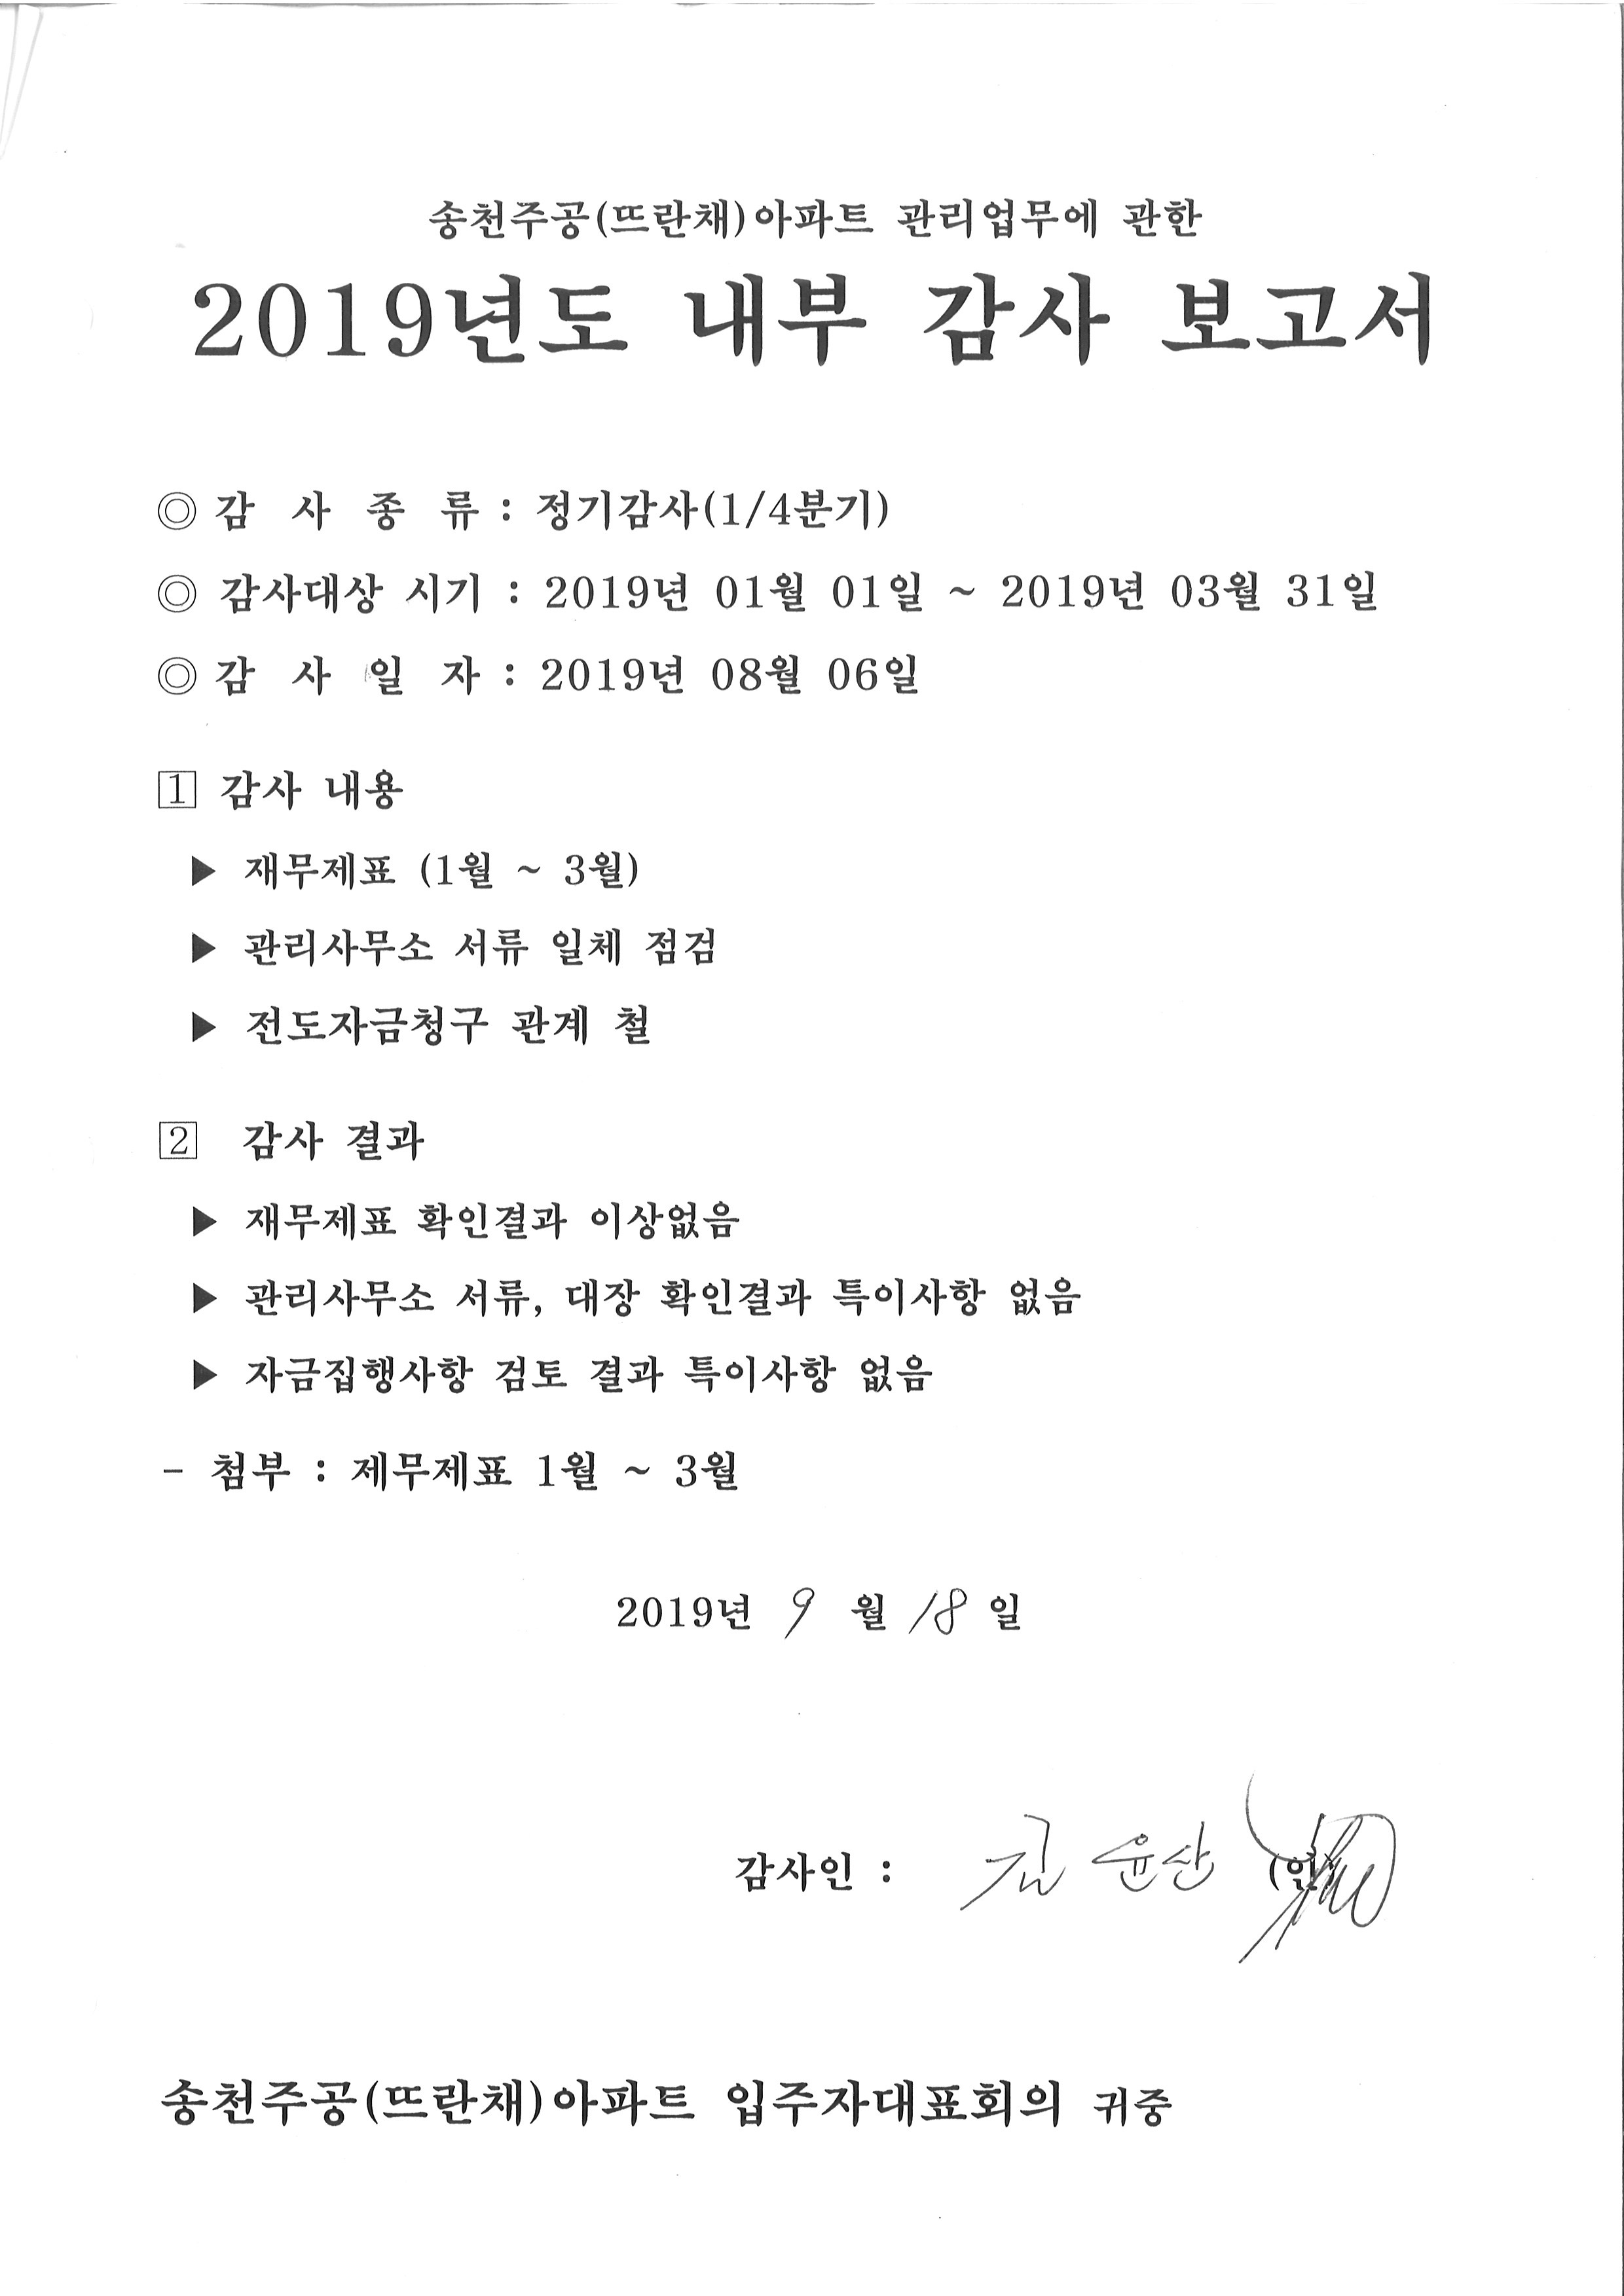 송천주공(뜨란채)아파트 관리업무에 관한
2019년도 내부 감사 보고서
◎ 감 사 종 류 : 정기감사(1/4분기)
◎ 감사대상 시기 : 2019년 01월 01일 ~ 2019년 03월 31일
◎ 감 사 일 자 : 2019년 08월 06일
1 감사 내용
▶ 재무제표 (1월 ~ 3월)
▶ 관리사무소 서류 일체 점검
▶ 전도자금청구 관계 철
2 감사 결과
▶ 재무제표 확인결과 이상없음
▶ 관리사무소 서류, 대장 확인결과 특이사항 없음
▶ 자금집행사항 검토 결과 특이사항 없음
- 첨부 : 제무제표 1월 ~ 3월
2019년 9 월 18 일
감사인 : 김 윤산 (인)
송천주공(뜨란채)아파트 입주자대표회의 귀중